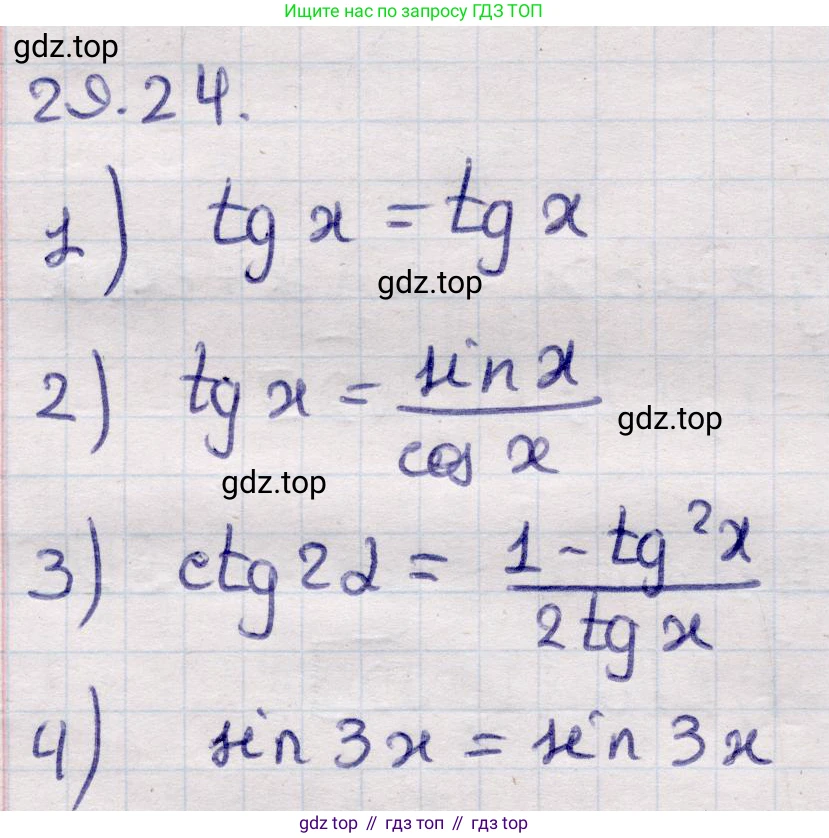 Ищите нас по запросу ГДЗ ТОП
gdz.top
29.24.
1) tg x = tg x
gdz.top
2) tg x = sin x / cos x
gdz.top
gdz.top
3) ctg 2α = 1 - tg²x / 2 tg x
4) sin 3x = sin 3x
gdz top // гдз топ // gdz top